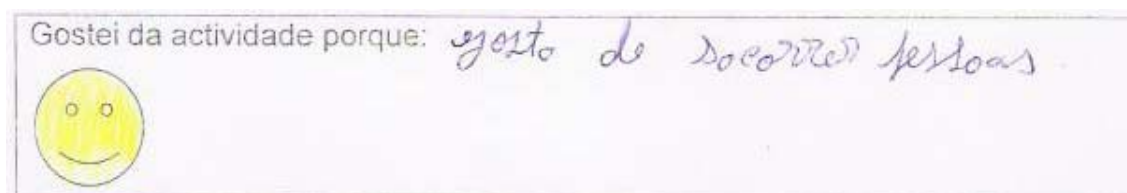 Gostei da actividade porque: gosto de socorrer pessoas.